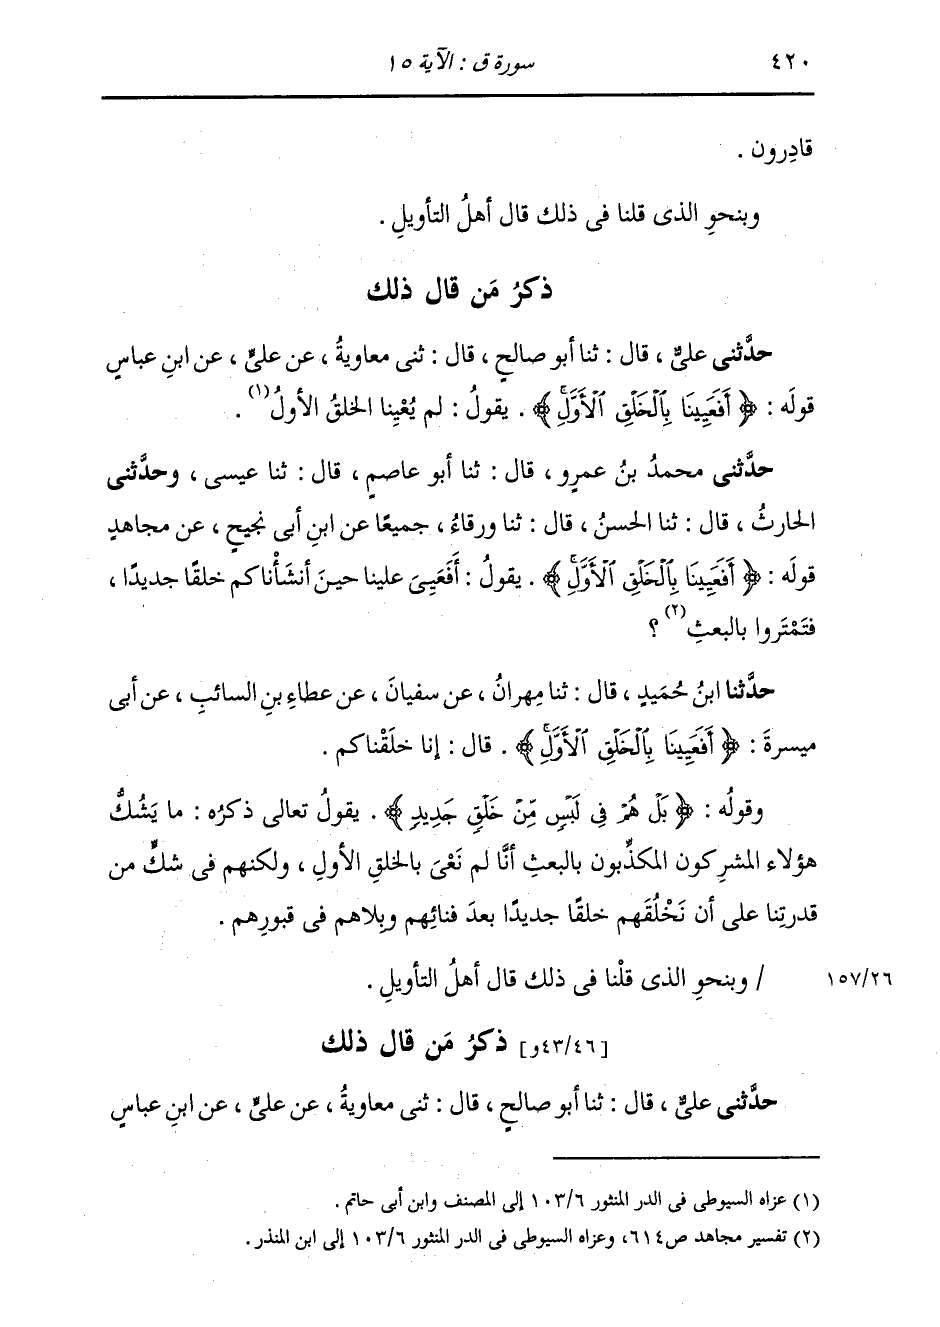 ٤٢٠ سورة ق : الآية ١٥
قادِرون .
وبنحوِ الذى قلنا فى ذلك قال أهلُ التأويلِ .
ذكرُ مَن قال ذلك
حدَّثنى علىٌّ ، قال : ثنا أبو صالحٍ ، قال : ثنى معاويةُ ، عن علىٍّ ، عن ابنِ عباسٍ
قولَه : ﴿ أَفَعَيِينَا بِٱلْخَلْقِ ٱلْأَوَّلِۚ ﴾ . يقولُ : لم يُعْيِنا الخلقُ الأولُ(١) .
حدَّثنى محمدُ بنُ عمرٍو ، قال : ثنا أبو عاصمٍ ، قال : ثنا عيسى ، وحدَّثنى
الحارثُ ، قال : ثنا الحسنُ ، قال : ثنا ورقاءُ ، جميعًا عن ابنِ أبى نجيحٍ ، عن مجاهدٍ
قولَه : ﴿ أَفَعَيِينَا بِٱلْخَلْقِ ٱلْأَوَّلِۚ ﴾ . يقولُ : أَفَعَيِىَ علينا حينَ أنشَأْناكم خلقًا جديدًا ،
فتَمْتَروا بالبعثِ(٢) ؟
حدَّثنا ابنُ حُمَيدٍ ، قال : ثنا مِهرانُ ، عن سفيانَ ، عن عطاءِ بنِ السائبِ ، عن أبى
ميسرةَ : ﴿ أَفَعَيِينَا بِٱلْخَلْقِ ٱلْأَوَّلِۚ ﴾ . قال : إنا خلَقْناكم .
وقولُه : ﴿ بَلْ هُمْ فِى لَبْسٍ مِّنْ خَلْقٍ جَدِيدٍ ﴾ . يقولُ تعالى ذكرُه : ما يَشُكُّ
هؤلاء المشرِكون المكذِّبون بالبعثِ أنَّا لم نَعْىَ بالخلقِ الأولِ ، ولكنهم فى شكٍّ من
قدرتِنا على أن نَخْلُقَهم خلقًا جديدًا بعدَ فنائِهم وبِلاهم فى قبورِهم .
١٥٧/٢٦ / وبنحوِ الذى قلْنا فى ذلك قال أهلُ التأويلِ .
[٤٣/٤٦و] ذكرُ مَن قال ذلك
حدَّثنى علىٌّ ، قال : ثنا أبو صالحٍ ، قال : ثنى معاويةُ ، عن علىٍّ ، عن ابنِ عباسٍ
(١) عزاه السيوطى فى الدر المنثور ١٠٣/٦ إلى المصنف وابن أبى حاتم .
(٢) تفسير مجاهد ص٦١٤، وعزاه السيوطى فى الدر المنثور ١٠٣/٦ إلى ابن المنذر .